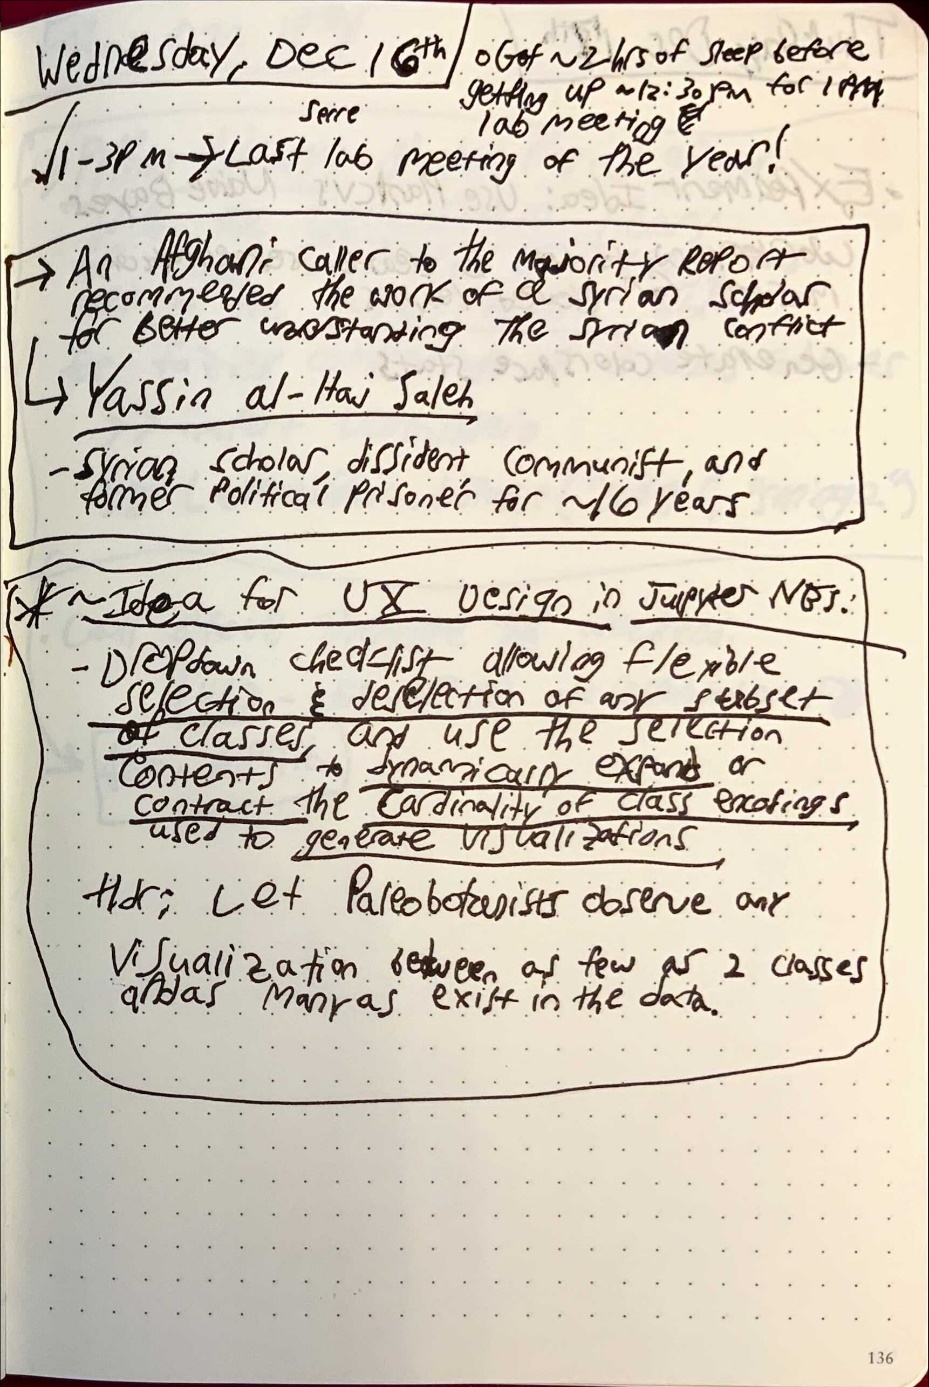 Wednesday, Dec 16th
o Got ~2 hrs of sleep before
getting up ~12:30 pm for 1 PM
lab meeting
Serre
√ 1-3PM → Last lab meeting of the year!
→ An Afghani caller to the Majority Report
recommended the work of a Syrian scholar
for better understanding the Syrian conflict
↳ Yassin al-Haj Saleh
- Syrian scholar, dissident, communist, and
former political prisoner for ~16 years
* ~ Idea for UX Design in Jupyter NBs:
- Dropdown checklist allowing flexible
selection & deselection of any subset
of classes, and use the selection
contents to dynamically expand or
contract the cardinality of class encodings
used to generate visualizations
tldr; Let Paleobotanists observe any
visualization between as few as 2 classes
and as many as exist in the data.
136